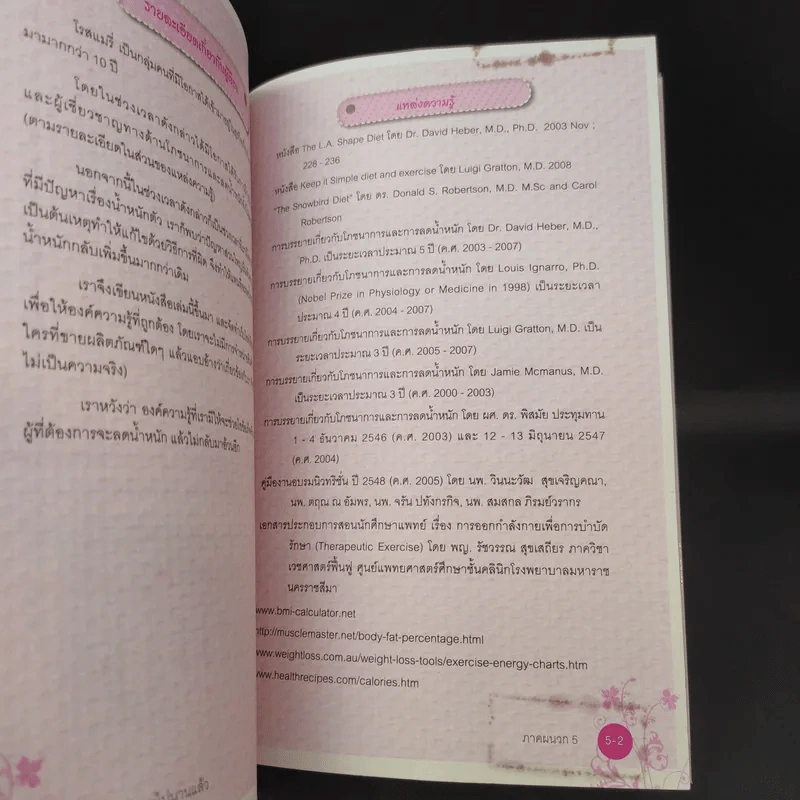 รายละเอียดเกี่ยวกับผู้
โรสแมรี่ เป็นกลุ่มคนที่มีโอกาสได้เข้ามา
มามากกว่า 10 ปี
โดยในช่วงเวลาดังกล่าวได้มีโอกาสได้
และผู้เชี่ยวชาญทางด้านโภชนาการและลดน้ำหนัก
(ตามรายละเอียดในส่วนของแหล่งความรู้)
นอกจากนี้ในช่วงเวลาดังกล่าวก็เป็นช่วงเวลา
ที่มีปัญหาเรื่องน้ำหนักตัว เราก็พบว่าปัญหาส่วนใหญ่
เป็นต้นเหตุทำให้แก้ไขด้วยวิธีการที่ผิด จึงทำให้
น้ำหนักกลับเพิ่มขึ้นมากกว่าเดิม
เราจึงเขียนหนังสือเล่มนี้ขึ้นมา และ
เพื่อให้องค์ความรู้ที่ถูกต้อง โดยเราจะไม่มีการ
ใครที่ขายผลิตภัณฑ์ใดๆ แล้วแอบอ้างว่าเกี่ยวข้อง
ไม่เป็นความจริง)
เราหวังว่า องค์ความรู้ที่เรามีให้จะช่วย
ผู้ที่ต้องการจะลดน้ำหนัก แล้วไม่กลับมาอ้วนอีก
ไปนานแล้ว
แหล่งความรู้
หนังสือ The L.A. Shape Diet โดย Dr. David Heber, M.D., Ph.D. 2003 Nov ;
228 - 236
หนังสือ Keep it Simple diet and exercise โดย Luigi Gratton, M.D. 2008
"The Snowbird Diet" โดย ดร. Donald S. Robertson, M.D. M.Sc and Carol
Robertson
การบรรยายเกี่ยวกับโภชนาการและการลดน้ำหนัก โดย Dr. David Heber, M.D.,
Ph.D. เป็นระยะเวลาประมาณ 5 ปี (ค.ศ. 2003 - 2007)
การบรรยายเกี่ยวกับโภชนาการและการลดน้ำหนัก โดย Louis Ignarro, Ph.D.
(Nobel Prize in Physiology or Medicine in 1998) เป็นระยะเวลา
ประมาณ 4 ปี (ค.ศ. 2004 - 2007)
การบรรยายเกี่ยวกับโภชนาการและการลดน้ำหนัก โดย Luigi Gratton, M.D. เป็น
ระยะเวลาประมาณ 3 ปี (ค.ศ. 2005 - 2007)
การบรรยายเกี่ยวกับโภชนาการและการลดน้ำหนัก โดย Jamie Mcmanus, M.D.
เป็นระยะเวลาประมาณ 3 ปี (ค.ศ. 2000 - 2003)
การบรรยายเกี่ยวกับโภชนาการและการลดน้ำหนัก โดย ผศ. ดร. พิสมัย ประทุมทาน
1 - 4 ธันวาคม 2546 (ค.ศ. 2003) และ 12 - 13 มิถุนายน 2547
(ค.ศ. 2004)
คู่มืองานอบรมนิวทริชั่น ปี 2548 (ค.ศ. 2005) โดย นพ. วินนะวัฒ สุขเจริญคณา,
นพ. ตฤณ ณ อัมพร, นพ. จรัน ปทังกรกิจ, นพ. สมสกล ภิรมย์วรากร
เอกสารประกอบการสอนนักศึกษาแพทย์ เรื่อง การออกกำลังกายเพื่อการบำบัด
รักษา (Therapeutic Exercise) โดย พญ. รัชวรรณ สุขเสถียร ภาควิชา
เวชศาสตร์ฟื้นฟู ศูนย์แพทยศาสตร์ศึกษาชั้นคลินิกโรงพยาบาลมหาราช
นครราชสีมา
www.bmi-calculator.net
http://musclemaster.net/body-fat-percentage.html
www.weightloss.com.au/weight-loss-tools/exercise-energy-charts.htm
www.healthrecipes.com/calories.htm
ภาคผนวก 5
5-2